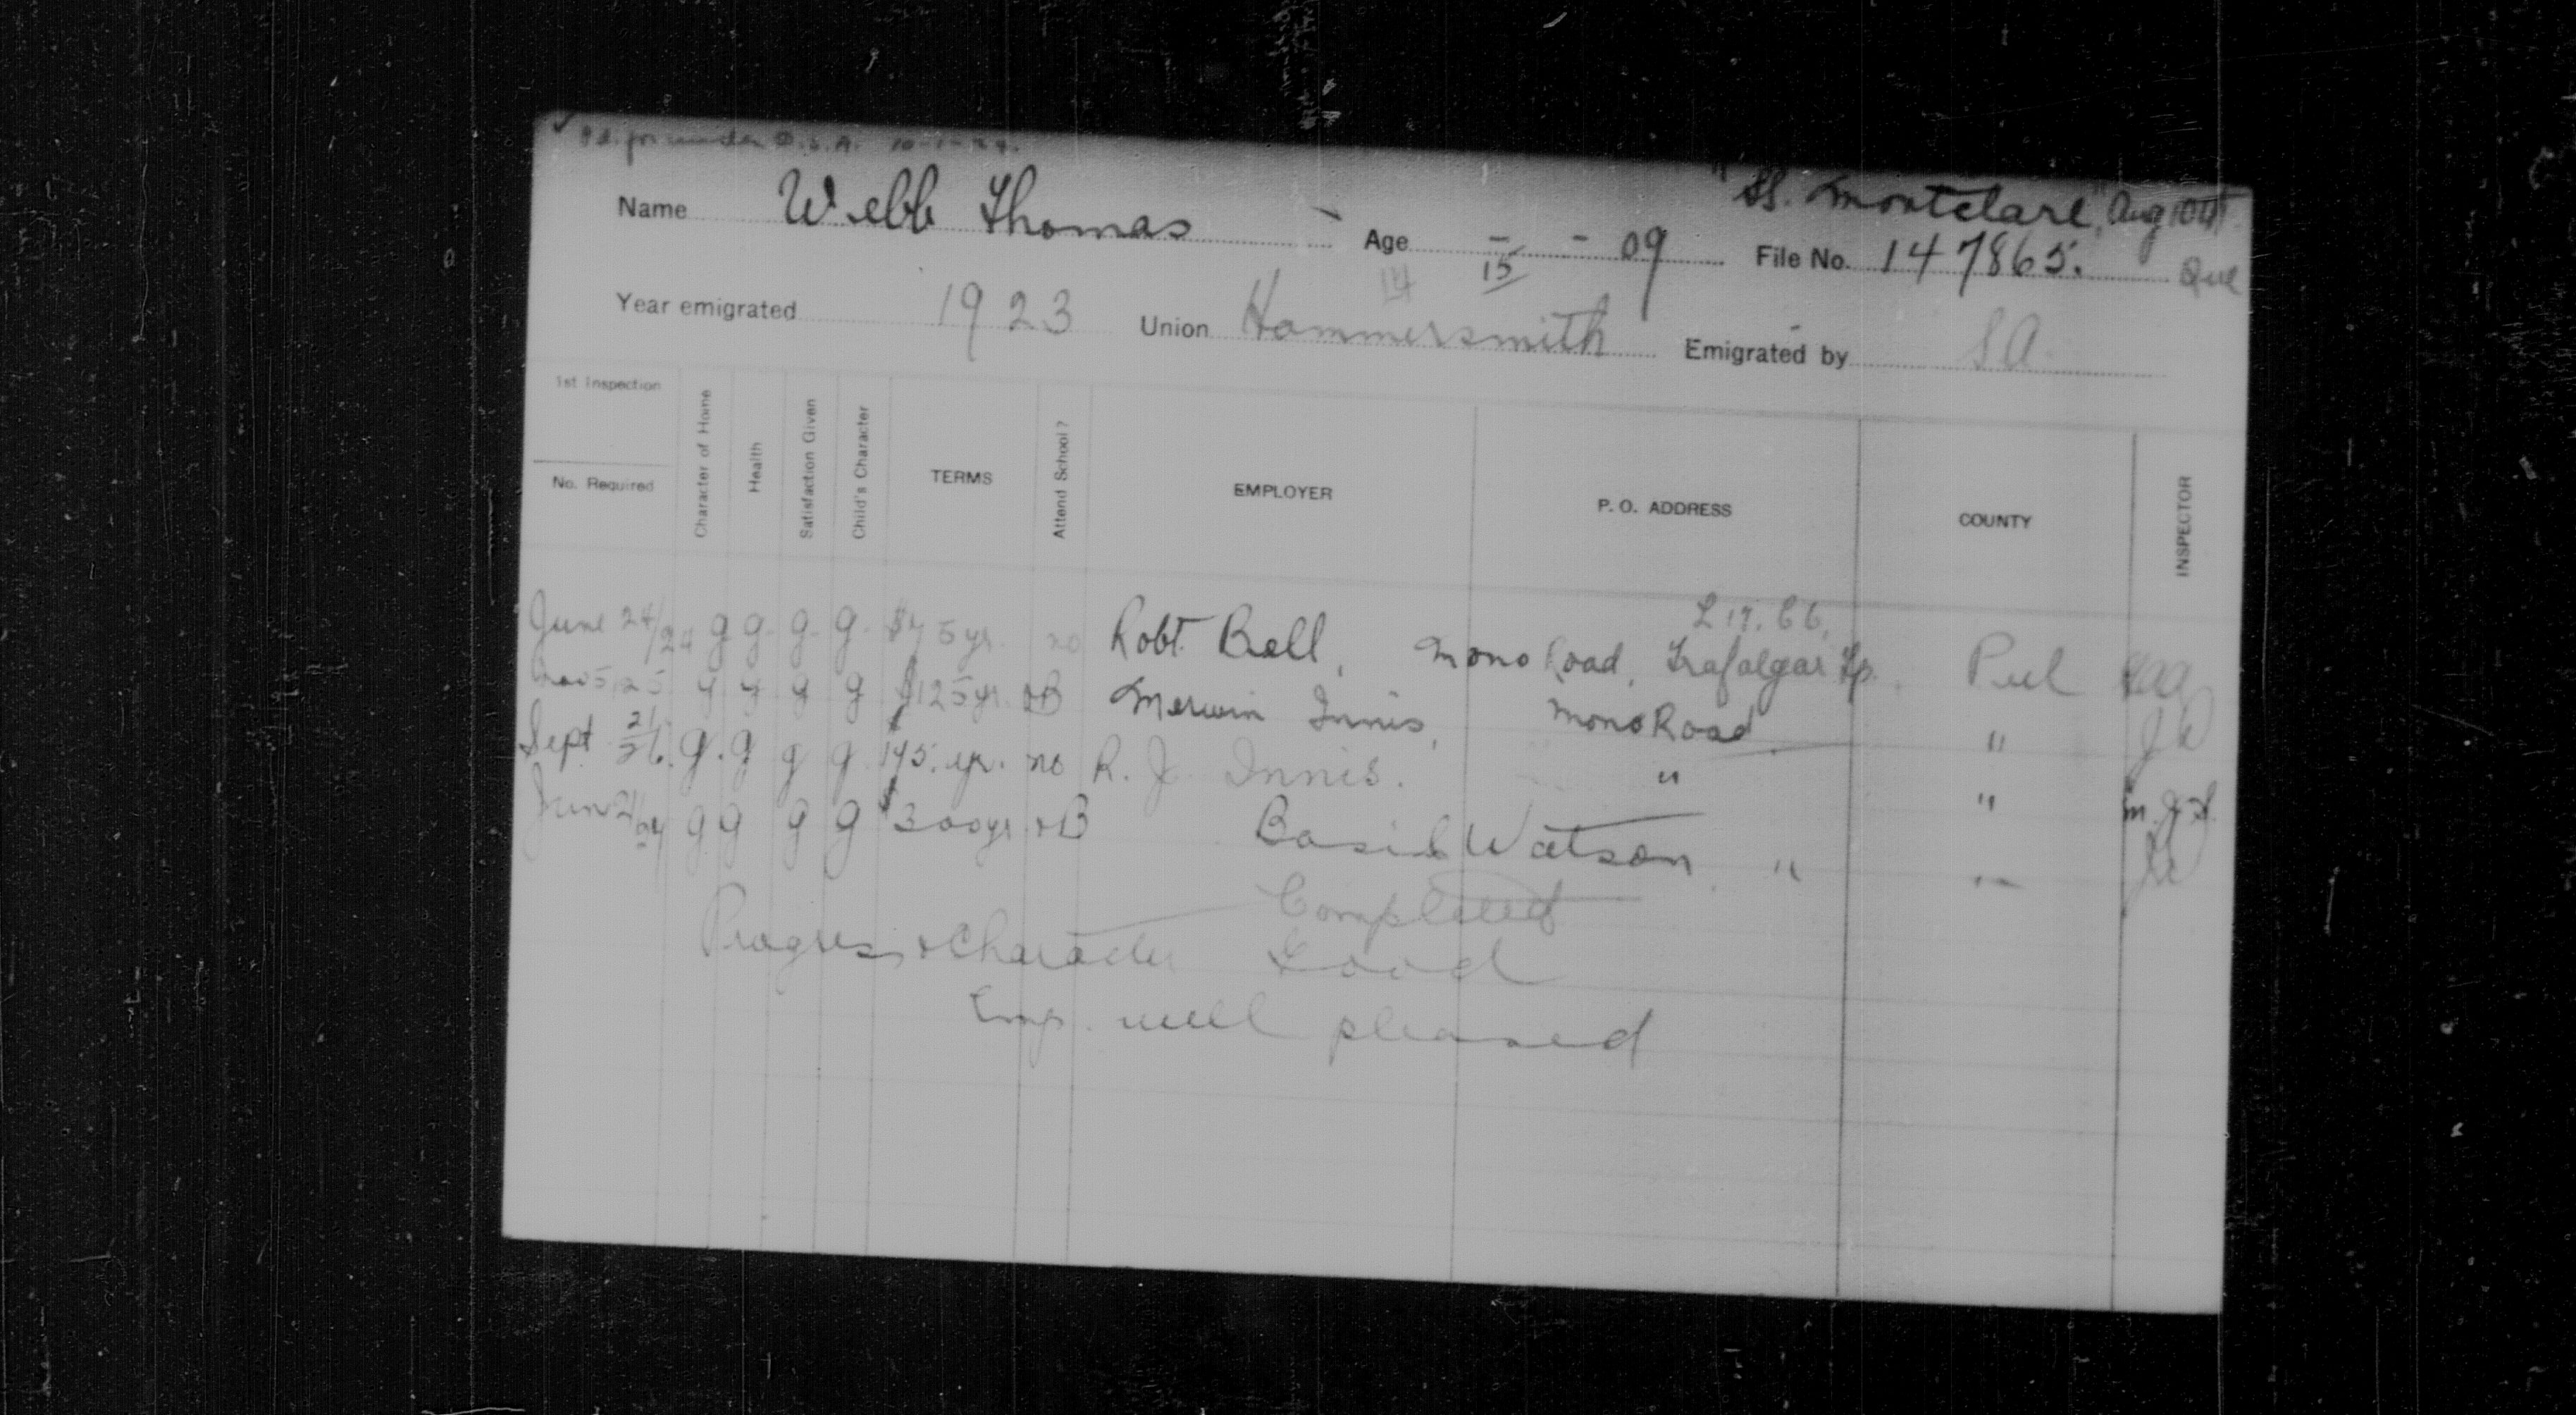 under D.S.A. 10-1-24.
"SS. Montclare," Aug 10
Name Webb Thomas Age - - 09 File No. 147865. Que
14 15
Year emigrated 1923 Union Hammersmith Emigrated by S.A.
1st Inspection
No. Required
Character of Home
Health
Satisfaction Given
Child's Character
TERMS
Attend School?
EMPLOYER
P. O. ADDRESS
COUNTY
INSPECTOR
L 17. C 6,
June 24/24 g g. g. g. $75 yr. no Robt. Bell, Mono Road, Trafalgar Tp. Peel
Nov 5, 25 g g g g $125 yr. Merwin Innis, Mono Road "
Sept 21/26. g. g g g 145. yr. no R. J. Innis. " " M. J. S.
g g g g $300 yr Basil Watson " "
Completed
Progress & Character Good
Emp. well pleased